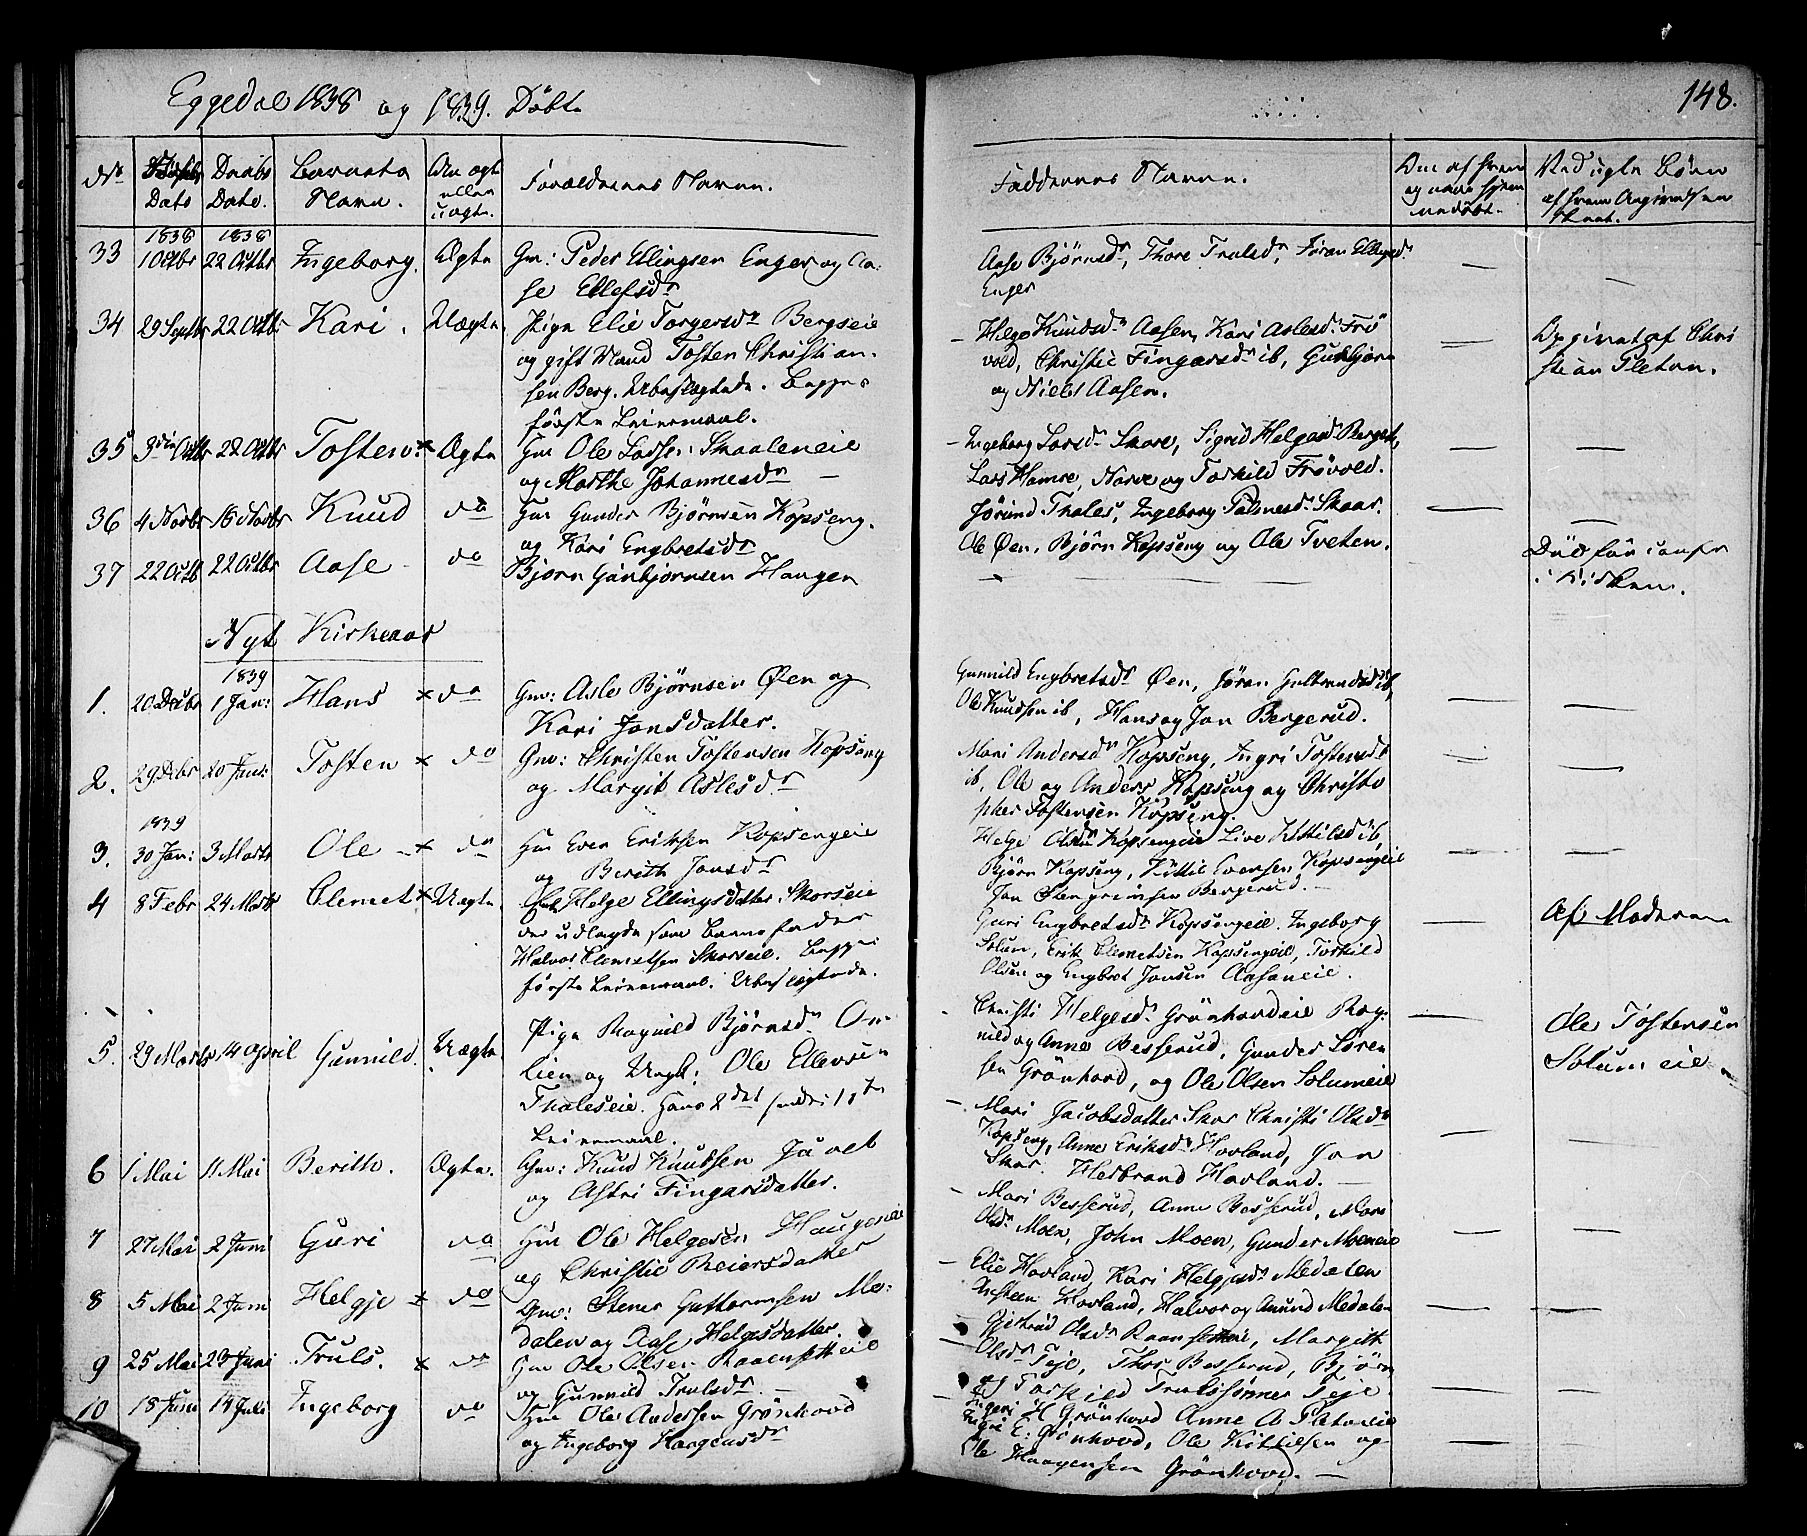 Eggedal 1838 og 1839. Döbte
148.
No
Dato
Daabs Dato.
Barnets Navn.
Om ægte eller uægte.
Forældrenes Navne.
Faddernes Navne.
Om af hvem og naar hjemmedöbt.
Ved uægte Börn af hvem Angivelsen skeet.
33 1838 1 Octbr 1838 22 Octbr Ingeborg. Ægte Gm: Peder Ellingsen Enger og Aa-
se Ellefsdr
Aase Björnsdr, Thore Trulsdr, Jöran Ellingsdr
Enger
34 29 Septbr 22 Octbr Kari. Uægte Pige Elie Torgersdr Bergseie
og gift Mand Tosten Christian-
sen Berg. Ubeslægtede. Begges
förste Leiermaal.
Helge Knudsdr Aasen, Kari Aslesdr Frö
vold, Christie Fingarsdr ib, Gulbjörn
og Niels Aasen.
Opgivet af Chri
stian Pleten.
35 3die Octbr 22 Octbr Tosten x Ægte Hm Ole Larsen Skaaleneie
og Marthe Johannesdr
Ingeborg Larsdr Skare, Sigrid Helgesdr Berget,
Lars Hamre, Narve og Torkild Frövold.
36 4 Novbr 18 Novbr Knud do Hm Gunder Björnsen Kopseng.
og Kari Engbretsdr
Jörund Thales, Ingeborg Skaar.
Ole Øen, Björn Kopseng og Ole Tveten.
37 22 Octb 22 Octbr Aase do Björn Gunbjörnsen Haugen
Död för
i Kirken.
Nyt Kirkeaar
1. 20 Decbr 1839 1 Jan: Hans x do Gm: Asle Björnsen Øen og
Kari Jonsdatter.
Gunnild Engbretsdr Øen, Jöran Gulbrandsdr ib,
Ole Knudsen ib, Hans og Jon Bergerud.
2. 29 Decbr 20 Jan: Tosten x do Gm: Christen Tostensen Kopseng
og Margit Aslesdr
Mari Andersdr Kopseng, Ingri Tostensdr
ib, Ole og Anders Kopseng og Christo
pher Tostensen Kopseng.
3. 1839 30 Jan: 3 Marts Ole x do Hm Even Eriksen Kopsengeie
og Berith Jonsdr
Helge Olsdr Kopsengeie Live Kittilsd ib,
Björn Kopseng, Kittil Evensen Kopsengeie
Jon Stengrimsen Bergerud.
4 8 Febr 24 Marts Clemet x Uægte Helge Ellingsdatter Skorseie
der udlagde som Barnefader
Halvor Clemetsen Skorseie. Begges
förste Leiermaal. Ubeslægtede.
Guri Engbretsdr Kopsengeie. Ingeborg
Solum, Erik Clemetsen Kopsengeie, Torkild
Olsen og Engbret Jonsen Aasaneie.
Af Moderen
5. 29 Marts 14 April Gunnild. Uægte Pige Ragnild Björnsdr On-
lien og Ungk: Ole Ellevsen
Thaleseie. Hans 2det hendes 1ste
Leiermaal.
Christi Helgesdr Grönhovdeie Rag-
nild og Anne Besserud, Gunder Sören
sen Grönhovd, og Ole Olsen Solumeie
Ole Tostensen
Solumeie.
6 1 Mai 11 Mai Berith. Ægte. Gm: Knud Knutsen Javel
og Astri Fingarsdatter.
Mari Jacobsdatter Skor Christi Olsdr
Kopseng, Anne Eriksdr Hovland, Jon
Skor. Herbrand Hovland.
7 27 Mai 2 Juni Guri do Hm Ole Helgesen Haugeneie
og Christie Reiersdatter
Mari Besserud, Anne Besserud, Mari
Olsdr Moen, John Moen, Gunder Moeneie
8 5 Mai 2 Juni Helgje x do Gm: Stener Guttormsen Me-
dalen og Aase Helgesdatter.
Elie Hovland, Kari Helgesdr Medalen
Hovland, Halvor og Amund Medalen
9 25 Mai 23 Juni Truls. x do Hm Ole Olsen Raaensetteie
og Gunnild Trulsdr
Gjertrud Olsdr Raansetteie, Margith
Olsdr Teje, Thor Besserud, Björn
og Torkild Trulssönner Teje.
10 18 Juni 14 Juli Ingeborg do Hm Ole Andersen Grönhovd
og Ingeborg Haagensdr
Ingeri H Grönhovd Anne A Pleteneie
Ingri E: Grönhovd, Ole Kittilsen og
Ole Haagensen Grönhovd.